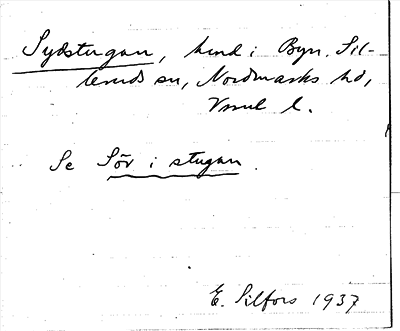 Sydstugan, hmd i Byn. Sil-
leruds sn, Nordmarks hd,
Vrml l.
Se Sör i stugan.
E. Silfors 1937